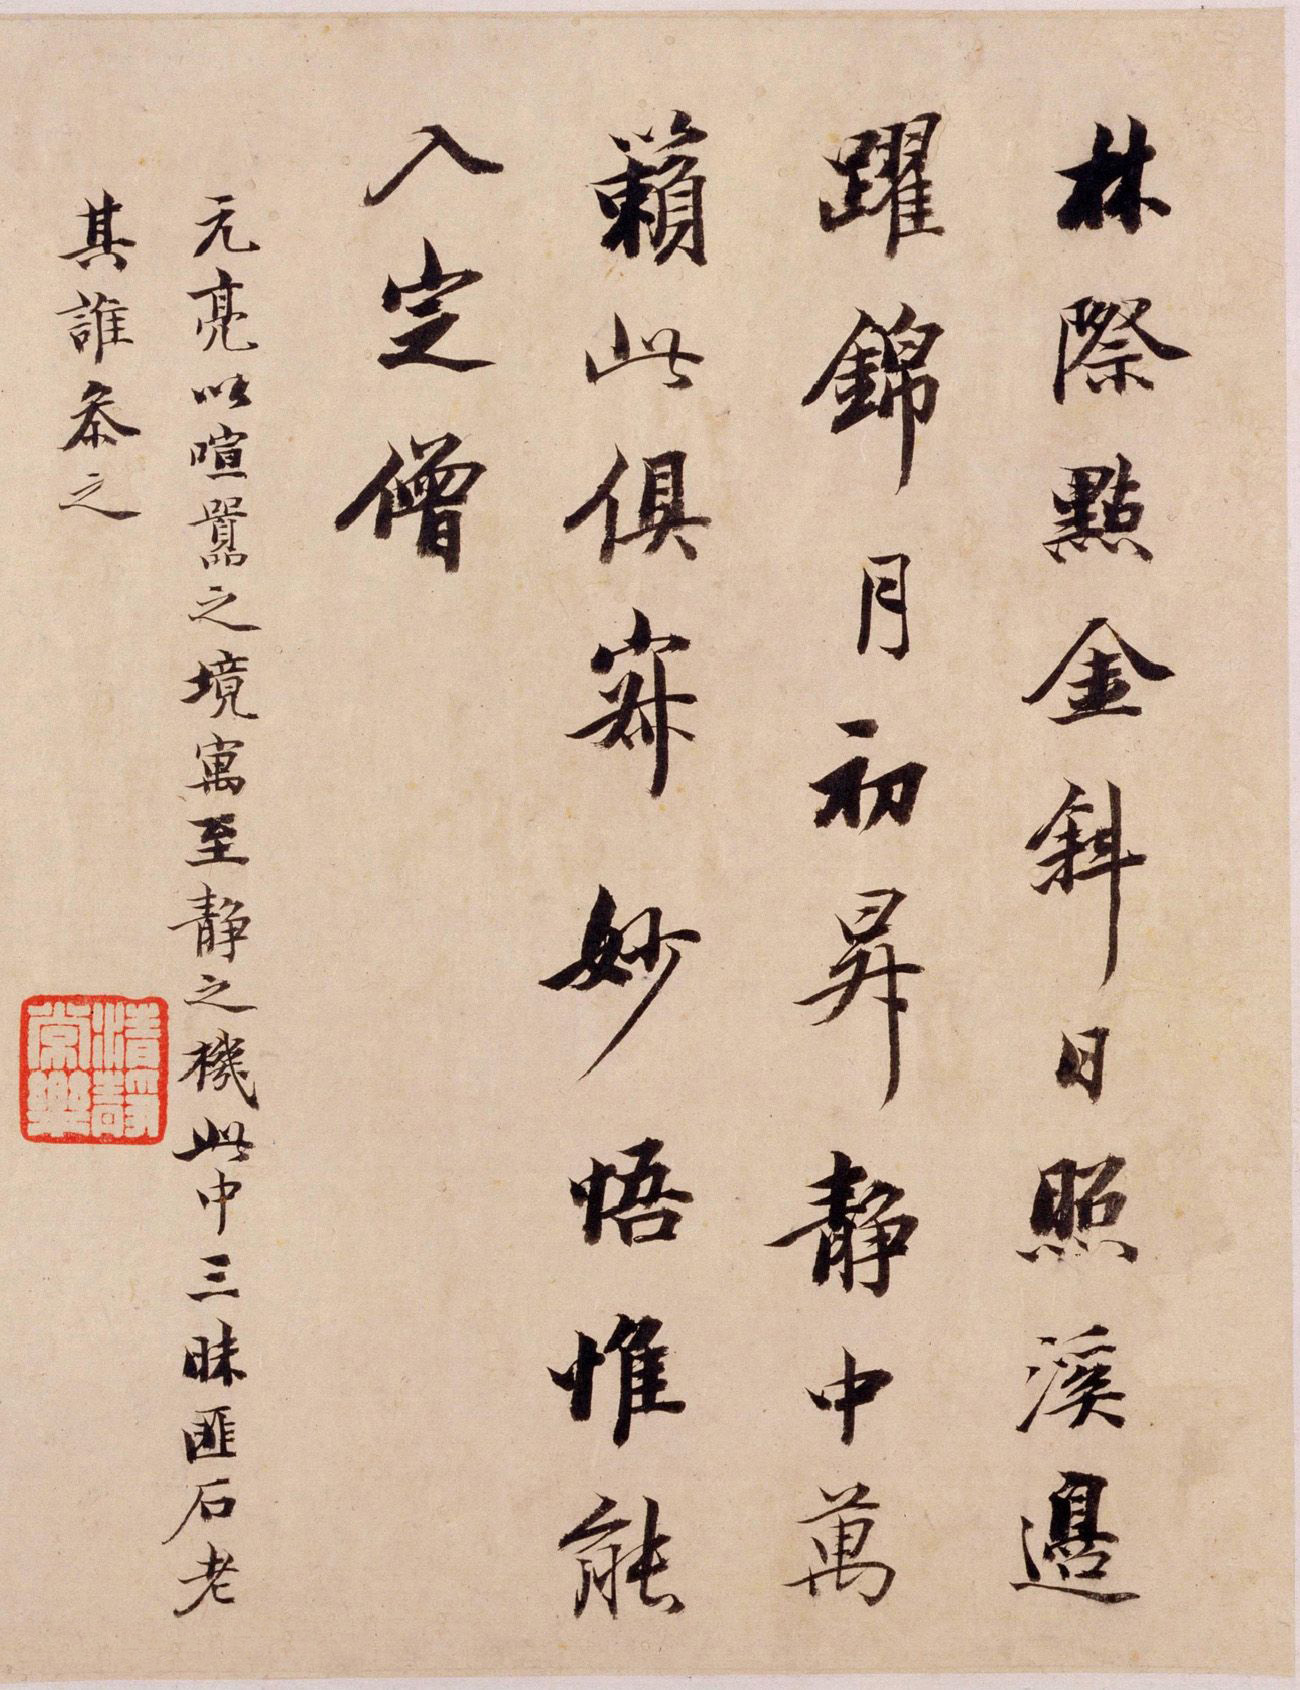 林際點金斜日照溪邊
躍錦月初昇靜中萬
籟此俱寂妙悟惟能
入定僧
元亮以喧囂之境寓至靜之機此中三昧匪石老
其誰參之
清靜
常樂